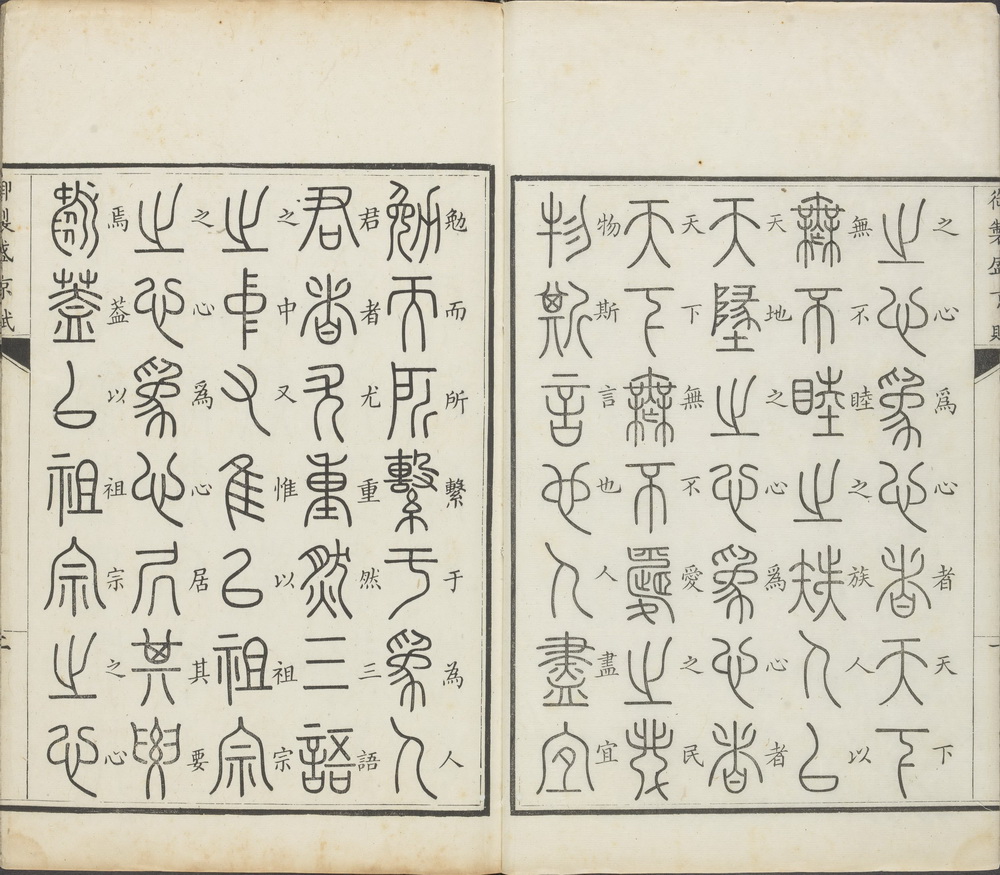 御製盛京賦
之心爲心者天下
無不睦之族人以
天地之心爲心者
天下無不愛之民
物斯言也人盡宜
勉而所繫于為人
君者尤重然三語
之中又惟以祖宗
之心爲心居其要
焉葢以祖宗之心
御製盛京賦